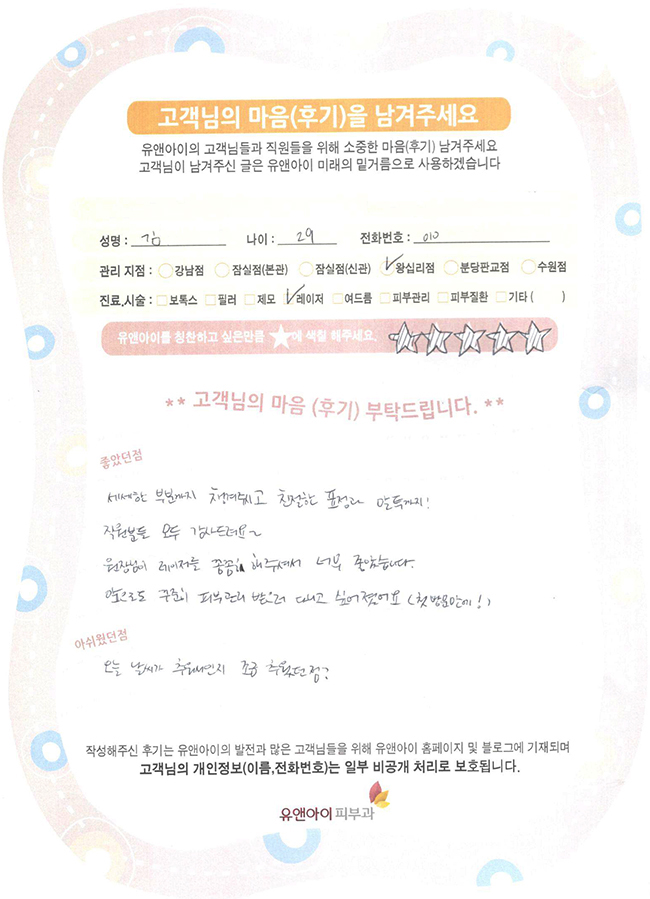 고객님의 마음(후기)을 남겨주세요
유앤아이의 고객님들과 직원들을 위해 소중한 마음(후기) 남겨주세요
고객님이 남겨주신 글은 유앤아이 미래의 밑거름으로 사용하겠습니다
성명 : 김 나이 : 29 전화번호 : 010
관리 지점 : 강남점 잠실점(본관) 잠실점(신관) 왕십리점 분당판교점 수원점
진료,시술 : 보톡스 필러 제모 레이저 여드름 피부관리 피부질환 기타 ( )
유앤아이를 칭찬하고 싶은만큼 ★에 색칠 해주세요.
** 고객님의 마음 (후기) 부탁드립니다. **
좋았던점
세세한 부분까지 챙겨주시고 친절한 표정과 말투까지!
직원분들 모두 감사드려요~
원장님이 레이저를 꼼꼼히 해주셔서 너무 좋았습니다.
앞으로도 꾸준히 피부관리 받으러 다니고 싶어졌어요 (첫 방문만에!)
아쉬웠던점
오늘 날씨가 추워서인지 조금 추웠던점?
작성해주신 후기는 유앤아이의 발전과 많은 고객님들을 위해 유앤아이 홈페이지 및 블로그에 기재되며
고객님의 개인정보(이름,전화번호)는 일부 비공개 처리로 보호됩니다.
유앤아이 피부과